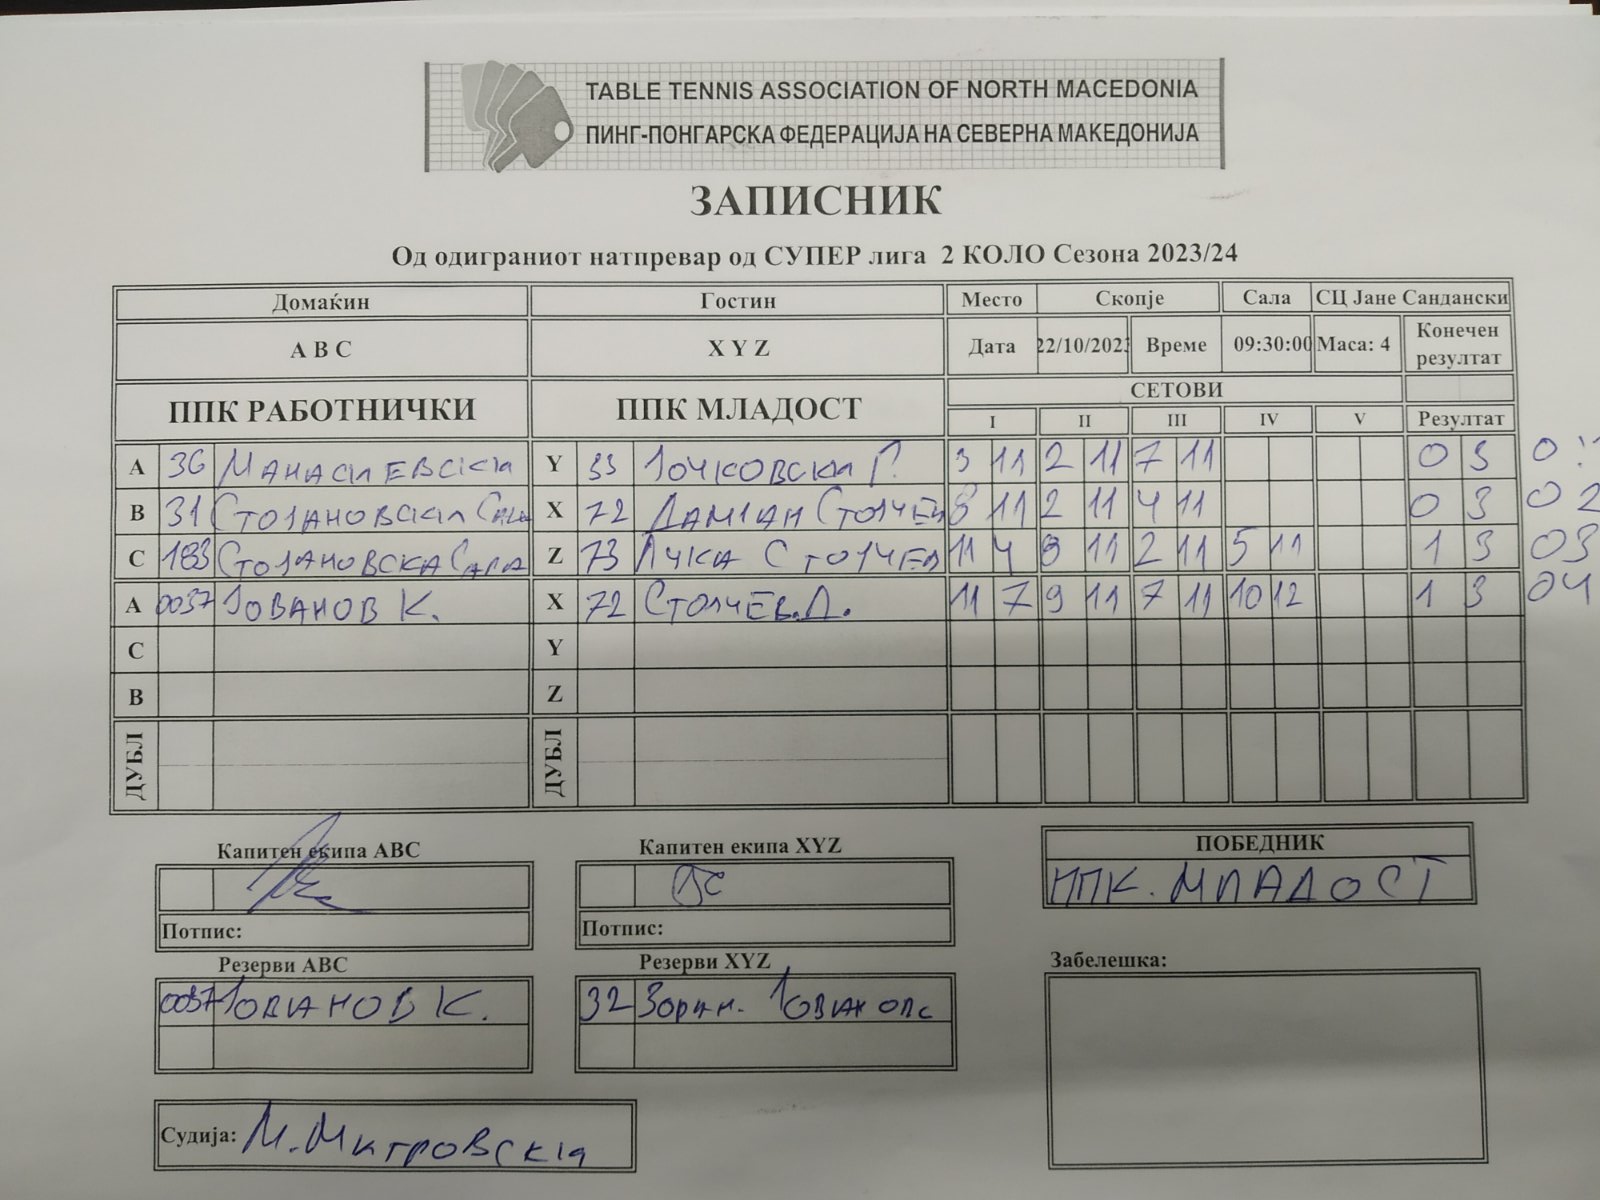 TABLE TENNIS ASSOCIATION OF NORTH MACEDONIA
ПИНГ-ПОНГАРСКА ФЕДЕРАЦИЈА НА СЕВЕРНА МАКЕДОНИЈА
ЗАПИСНИК
Од одиграниот натпревар од СУПЕР лига 2 КОЛО Сезона 2023/24
Домаќин Гостин Место Скопје Сала СЦ Јане Сандански
A B C X Y Z Дата 22/10/2023 Време 09:30:00 Маса: 4 Конечен резултат
ППК РАБОТНИЧКИ ППК МЛАДОСТ СЕТОВИ
I II III IV V Резултат
A 36 Y 33 3 11 2 11 7 11 0 3
B 31 X 72 ДАМЈАН 8 11 2 11 4 11 0 3 02
C 183 СТОЈАНОВСКА САРА Z 73 ЛУКА СТОЈЧЕВ 11 4 8 11 2 11 5 11 1 3 03
A 0037 ЈОВАНОВ К. X 72 СТОЈЧЕВ.Д. 11 7 9 11 7 11 10 12 1 3 04
C Y
B Z
ДУБЛ ДУБЛ
Капитен екипа ABC Капитен екипа XYZ ПОБЕДНИК
ППК. МЛАДОСТ
Потпис: Потпис:
Резерви ABC Резерви XYZ Забелешка:
0037 ЈОВАНОВ К. 32
Судија: М. Митровски